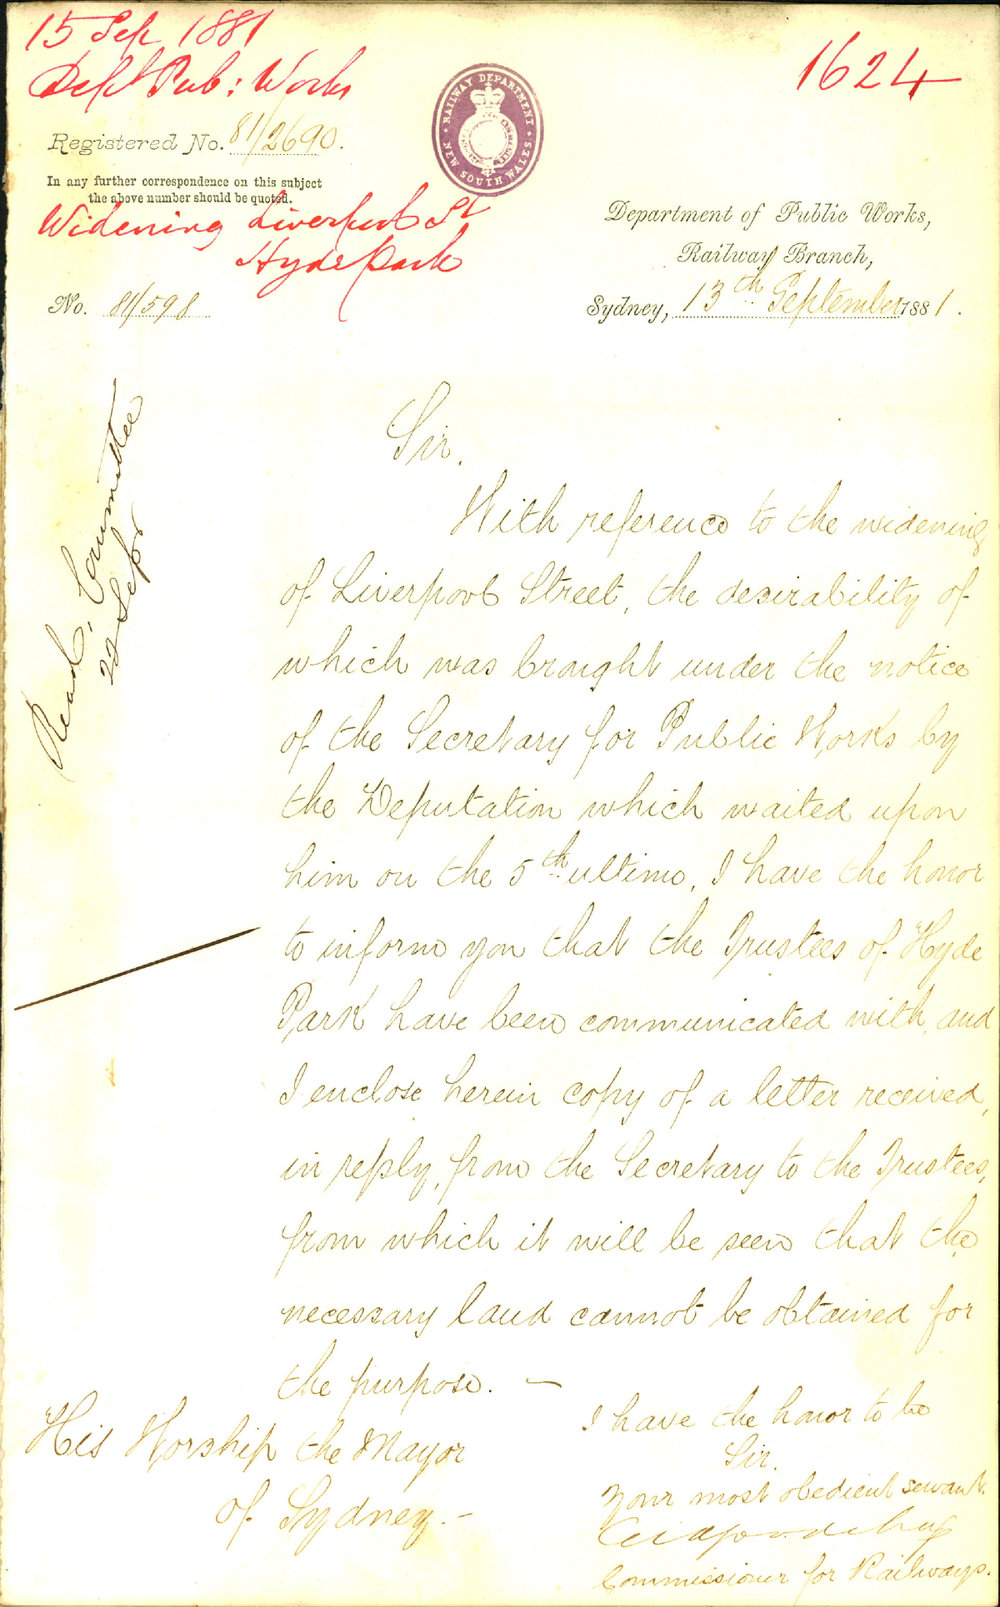 15 Sep 1881
Dept Pub: Works
1624
Registered No. 81/2690.
RAILWAY DEPARTMENT
NEW SOUTH WALES
In any further correspondence on this subject
the above number should be quoted.
Widening Liverpool St
Hyde Park
No. 81/598
Department of Public Works,
Railway Branch,
Sydney, 13th September 1881.
Read, Committee
22 Sepr
Sir,
With reference to the widening
of Liverpool Street, the desirability of
which was brought under the notice
of the Secretary for Public Works by
the Deputation which waited upon
him on the 5th ultimo, I have the honor
to inform you that the Trustees of Hyde
Park have been communicated with, and
I enclose herein copy of a letter received,
in reply, from the Secretary to the Trustees,
from which it will be seen that the
necessary land cannot be obtained for
the purpose. —
I have the honor to be
Sir,
Your most obedient servant
Commissioner for Railways.
His Worship the Mayor
of Sydney. -